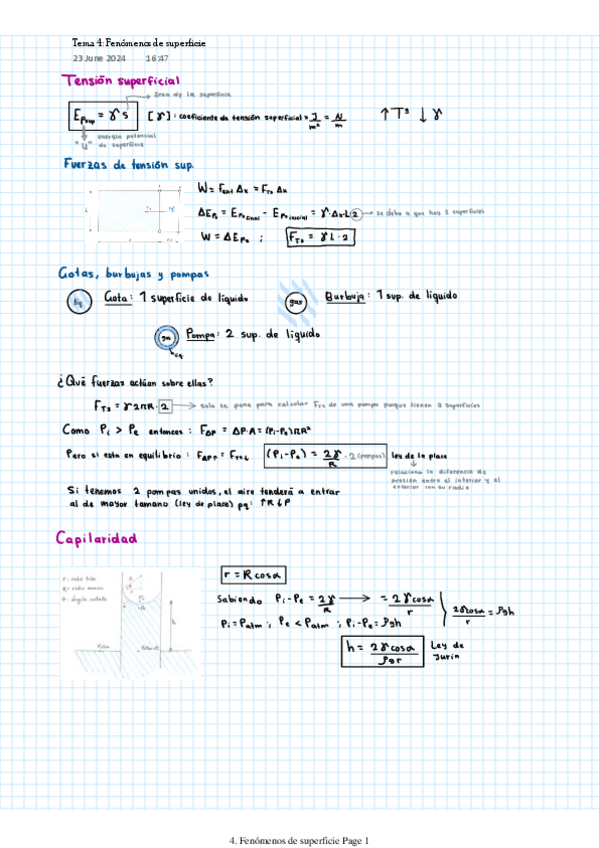 Tema 4: Fenómenos de superficie
23 June 2024 16:47
Tensión superficial
área de la superficie
Ep sup = γ s [γ]: coeficiente de tensión superficial = J/m² = N/m ↑Tª ↓γ
energía potencial
"U" de superficie
Fuerzas de tensión sup.
W = Fext Δx = FTs Δx
ΔEp = Ep final - Ep inicial = γ·Δx·L·2 → se debe a que hay 2 superficies
W = ΔEps ; FTs = γ L · 2
Gotas, burbujas y pompas
liq Gota: 1 superficie de líquido gas Burbuja: 1 sup. de líquido
gas Pompa: 2 sup. de líquido
liq
¿Qué fuerzas actúan sobre ellas?
FTs = γ 2πR · 2 → solo se pone para calcular FTs de una pompa porque tienen 2 superficies
Como Pi > Pe entonces: FΔP = ΔP·A = (Pi-Pe)πR²
Pero si esta en equilibrio: FΔP = FTs (Pi-Pe) = 2γ/R · 2 (pompas) ley de la place
relaciona la diferencia de
presión entre el interior y el
exterior con su radio
Si tenemos 2 pompas unidos, el aire tenderá a entrar
al de mayor tamano (ley de place) pq: ↑R ↓P
Capilaridad
r = R cosα
r: radio tubo
R: radio menisco
θ: ángulo contacto
h
Sabiendo Pi-Pe = 2γ/R → = 2γcosα/r
2γcosα/r = ρgh
Pi = Patm ; Pe < Patm ; Pi-Pe = ρgh
h = 2γcosα/ρgr Ley de
Jurin
4. Fenómenos de superficie Page 1